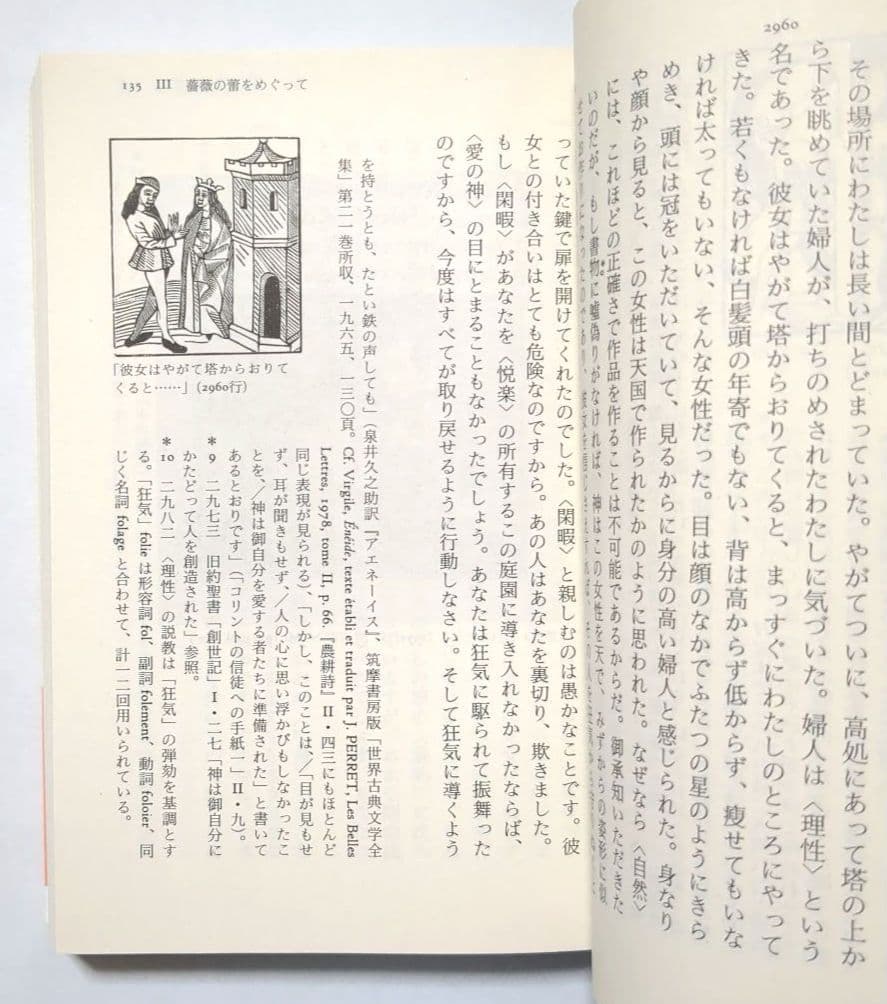 2960
その場所にわたしは長い間とどまっていた。やがてついに、高処にあって塔の上か
ら下を眺めていた婦人が、打ちのめされたわたしに気づいた。婦人は〈理性〉という
名であった。彼女はやがて塔からおりてくると、まっすぐにわたしのところにやって
きた。若くもなければ白髪頭の年寄でもない、背は高からず低からず、瘦せてもいな
ければ太ってもいない、そんな女性だった。目は顔のなかでふたつの星のようにきら
めき、頭には冠をいただいていて、見るからに身分の高い婦人と感じられた。身なり
や顔から見ると、この女性は天国で作られたかのように思われた。なぜなら〈自然〉
には、これほどの正確さで作品を作ることは不可能であるからだ。御承知いただきた
いのだが、もし書物に嘘偽りがなければ、神はこの女性を天で、みずからの姿形に似
135 III 薔薇の蕾をめぐって
っていた鍵で扉を開けてくれたのでした。〈閑暇〉と親しむのは愚かなことです。彼
女との付き合いはとても危険なのですから。あの人はあなたを裏切り、欺きました。
もし〈閑暇〉があなたを〈悦楽〉の所有するこの庭園に導き入れなかったならば、
〈愛の神〉の目にとまることもなかったでしょう。あなたは狂気に駆られて振舞った
のですから、今度はすべてが取り戻せるように行動しなさい。そして狂気に導くよう
を持とうとも、たとい鉄の声しても」(泉井久之助訳『アエネーイス』、筑摩書房版「世界古典文学全
集」第二一巻所収、一九六五、一三〇頁。Cf. Virgile, Énéide, texte établi et traduit par J. PERRET, Les Belles
Lettres, 1978, tome II, p. 66.『農耕詩』II・四三にもほとんど
同じ表現が見られる)、「しかし、このことは、/「目が見もせ
ず、耳が聞きもせず、/人の心に思い浮かびもしなかったこ
とを、/神は御自分を愛する者たちに準備された」と書いて
あるとおりです」(「コリントの信徒への手紙一」II・九)。
*9 二九七三 旧約聖書「創世記」I・二七「神は御自分に
かたどって人を創造された」参照。
*10 二九八二 〈理性〉の説教は「狂気」の弾劾を基調とす
る。「狂気」folie は形容詞 fol、副詞 folement、動詞 foloier、同
じく名詞 folage と合わせて、計一二回用いられている。
「彼女はやがて塔からおりて
くると……」(2960行)